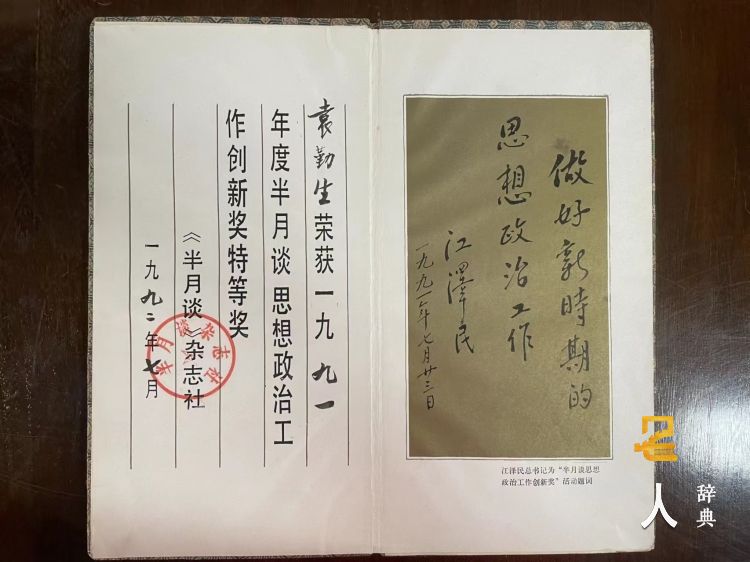 做好新時期的
思想政治工作
江澤民
一九九一年七月廿三日
江泽民总书记为“半月谈思想
政治工作创新奖”活动题词
袁勤生荣获一九九一
年度半月谈思想政治工
作创新奖特等奖
《半月谈》杂志社
一九九二年七月
半月谈杂志社
人
辞典